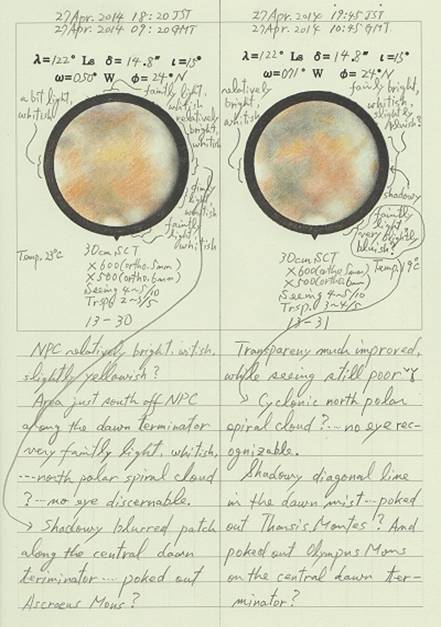 27 Apr. 2014 18:20 JST
27 Apr. 2014 09:20 GMT
λ=122° Ls δ=14.8" ι=15°
ω=050° W φ=24°N
a bit light,
whitish
faintly light,
whitish
relatively
bright,
whitish
dimly
light
whitish
faintly
light
whitish
Temp. 23°C
30cm SCT
×600(ortho.5mm)
×500(ortho.6mm)
Seeing 4~5/10
Trsp. 2~3/5
13-30
NPC relatively bright, witish,
slightly yellowish?
Area just south off NPC
along the dawn terminator
very faintly light, whitish,
---north polar spiral cloud
?---no eye discernable.
Shadowy blurred patch
along the central dawn
teriminator .... poked out
Ascraeus Mons?
27 Apr. 2014 19:45 JST
27 Apr. 2014 10:45 GMT
λ=122° Ls δ=14.8" ι=15°
ω=071° W φ=24°N
relatively
bright,
whitish
faily bright,
whitish,
slightly
bluish?
shadowy
faintly
light
(very slightly
bluish?
Temp. 19°C
30cm SCT
×600(ortho.5mm)
×500(ortho.6mm)
Seeing 4~5/10
Trsp. 3~4/5
13-31
Transpareny much improved,
while seeing still poor
Cyclonic north polar
spiral cloud?--- no eye rec-
ognizable.
Shadowy diagonal line
in the dawn mist---poked
out Tharsis Montes? And
poked out Olympus Mons
on the central dawn ter-
minator?